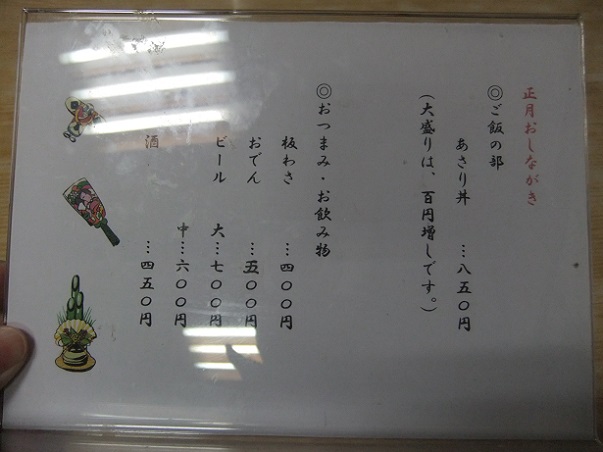 正月おしながき
◎ご飯の部
あさり丼 …八五〇円
(大盛りは、百円増しです。)
◎おつまみ・お飲み物
板わさ …四〇〇円
おでん …五〇〇円
ビール 大…七〇〇円
中…六〇〇円
酒 …四五〇円